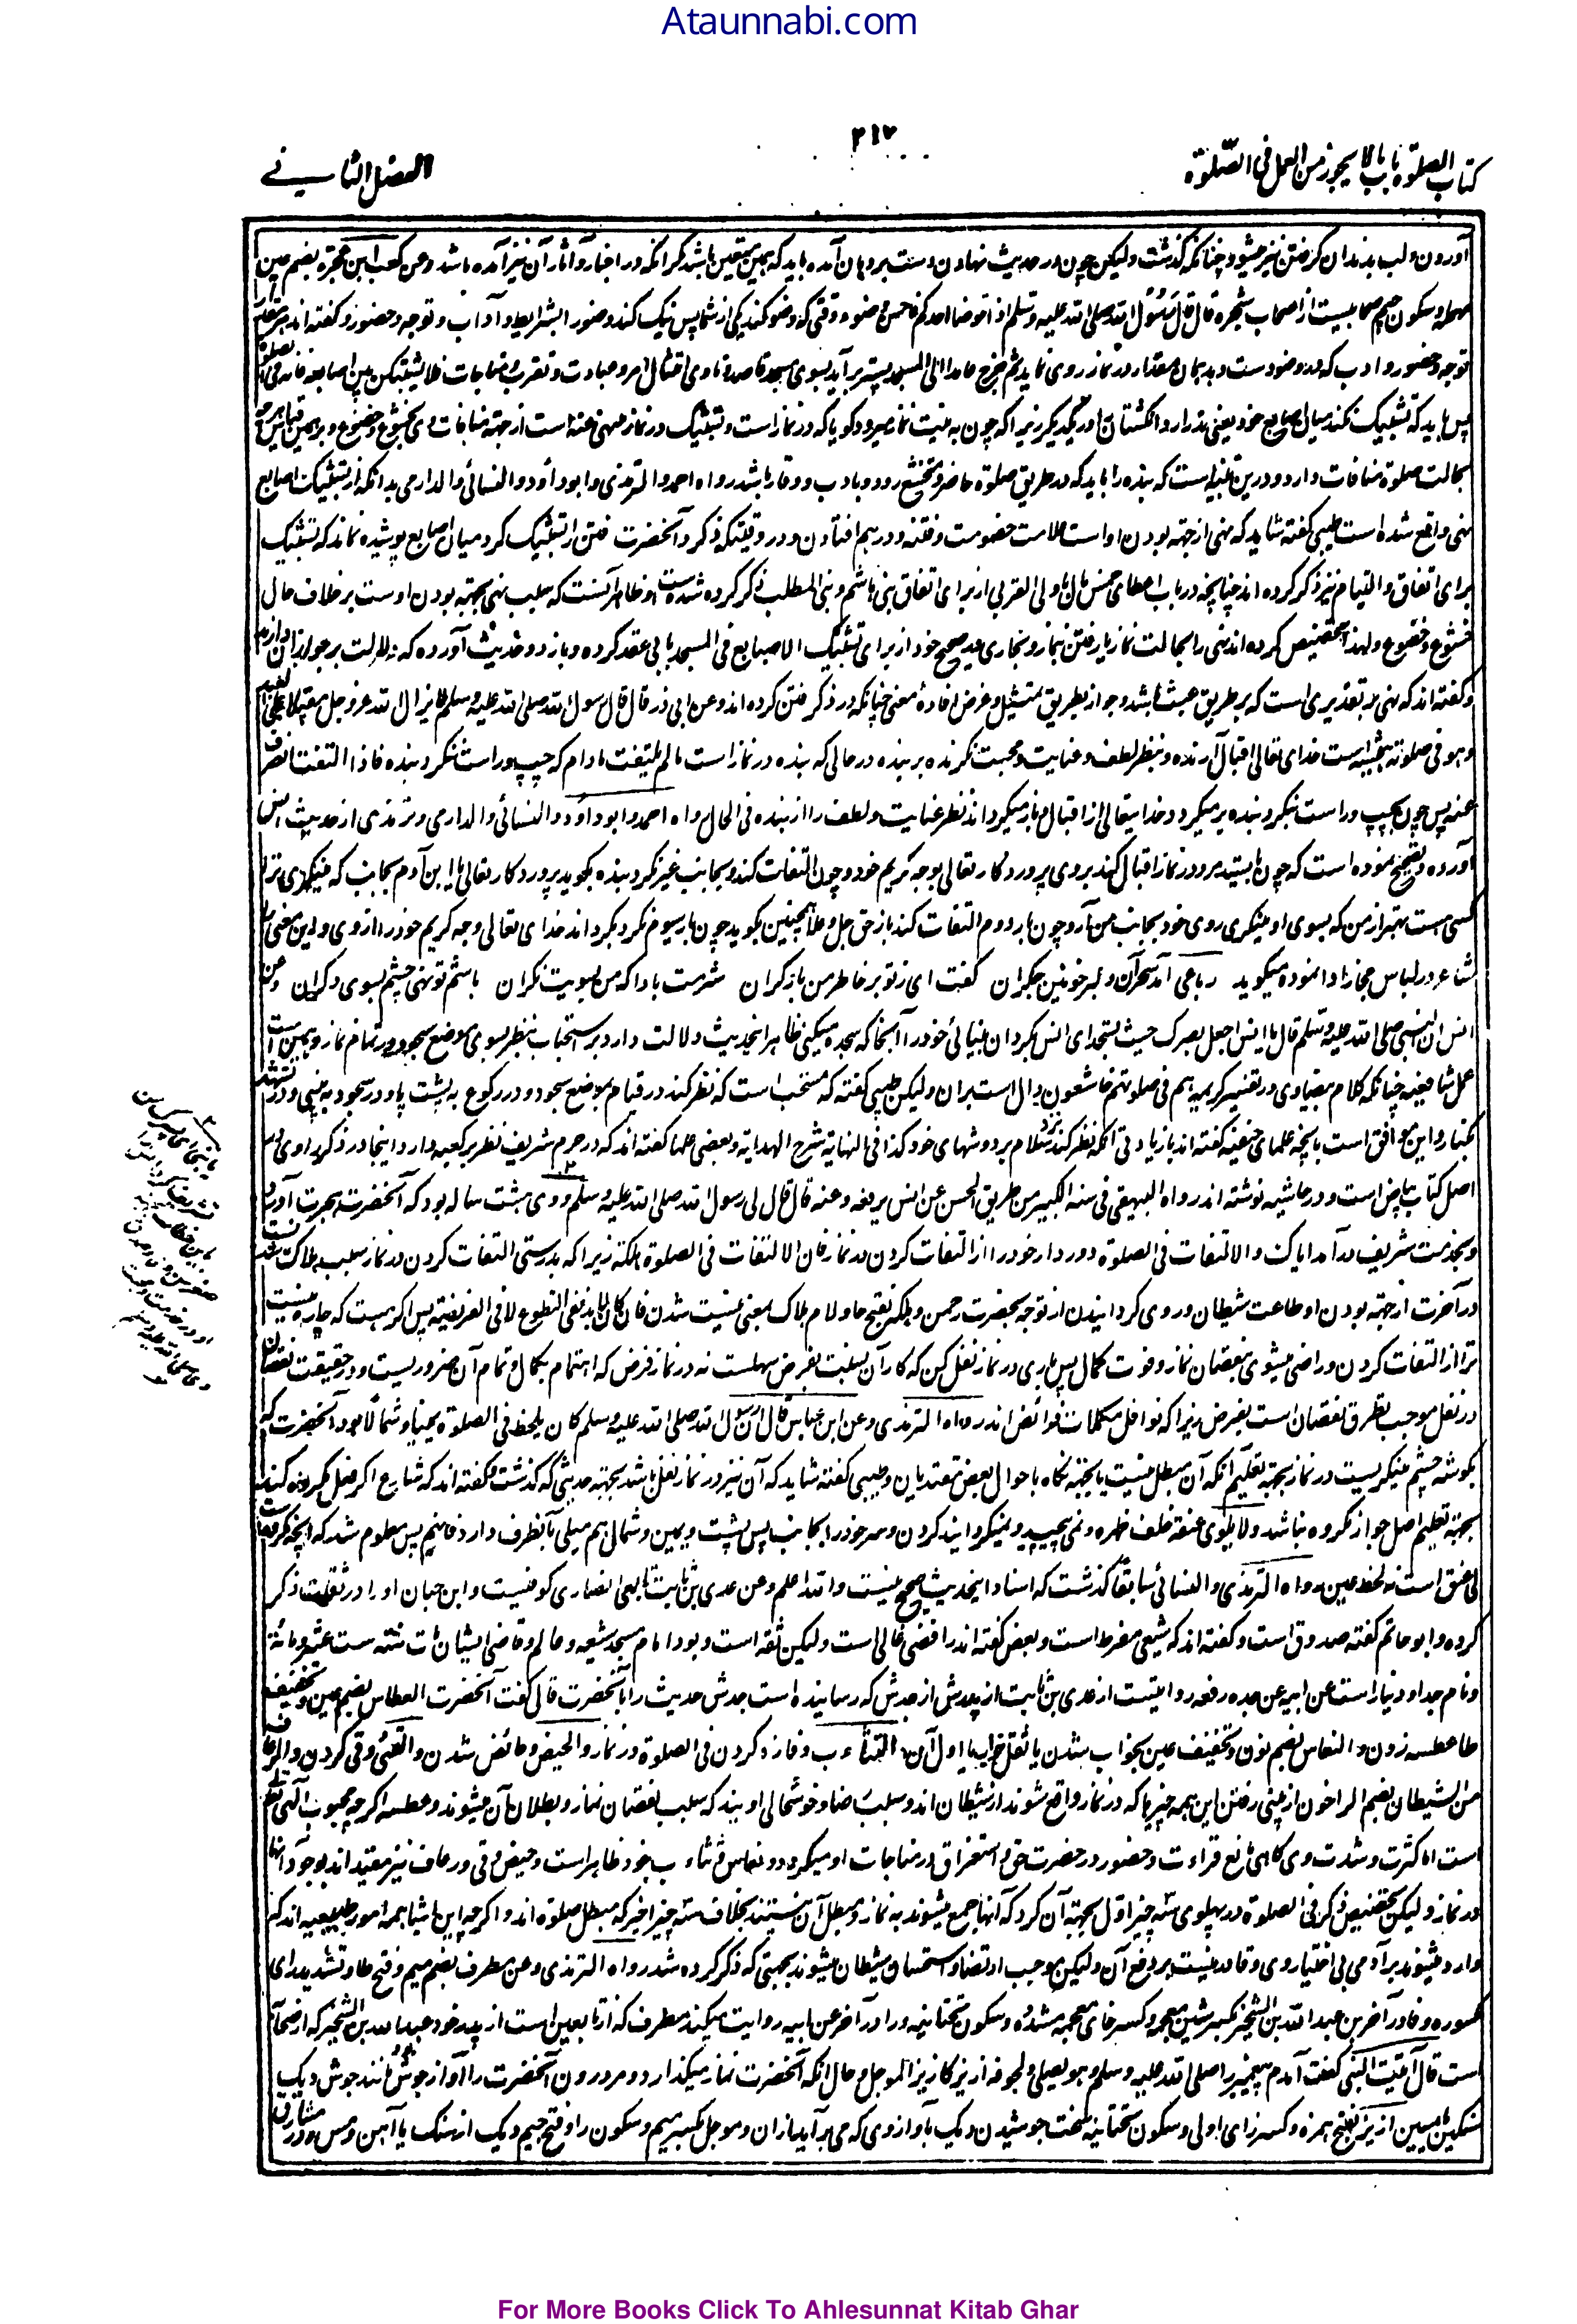 Ataunnabi.com
کتاب الصلوة باب مالا یجوز من العمل فی الصلوة
۴۱۷
الفصل الثانی
آوردن ولب بدندان گرفتن نیز میشود چنانکه گذشت ولیکن چون در حدیث نهادن دست بر دهان آمده باید که همین متعین باشد مگر آنکه در اخبار و آثار آن نیز آمده باشد وعن کعب ابن عجرة بضم عین
مهمله وسکون جیم صحابیست از اصحاب شجره قال قال رسول الله صلی الله علیه وسلم اذا توضأ احدکم فاحسن وضوءه وقتی که وضو کند یکی از شما پس نیک کند وضو را بشرایط و آداب و توجه وحضور وگفته اند
توجه وحضور و ادب که در وضوست و بهمان مقدار در نماز روی نماید ثم خرج عامدا الی المسجد پستر برآید بسوی مسجد قاصد وناوی امتثال امر وعبادت وتقرب ومناجات فلا یشبکن بین اصابعه فانه فی الصلوة
پس باید که تشبیک نکند میان اصابع خود یعنی در نیارد انگشتان را در یکدیگر زیرا که چون به نیت نماز میرود گویا که در نماز است وتشبیک در نماز منهی عنه است از جهت منافات وی بخشوع وخضوع وبر همین قیاس هر چه
بحالت صلوة منافات دارد ودرین تنبیه است که بنده را باید که در طریق صلوة حاضر ومتخشع رود و با ادب و وقار باشد رواه احمد والترمذی وابوداؤد والنسائی والدارمی بدانکه از تشبیک اصابع
نهی واقع شده است طیبی گفته شاید که نهی از جهت بودن او است علامت خصومت وفتنه ودرهم افتادن ودر وقتیکه ذکر کرد آنحضرت فتن را تشبیک کرد میان اصابع پوشیده نماند که تشبیک
برای اتفاق والتیام نیز ذکر کرده اند چنانچه در باب اعطای خمس مال باولی القربی از برای اتفاق بنی هاشم وبنی المطلب ذکر کرده شده است وظاهر آنست که سبب نهی بجهت بودن اوست بر خلاف حال
خشوع وخضوع ولهذا تخصیص کرده اند نهی را بحالت نماز یا رفتن بنماز وبخاری در صحیح خود از برای تشبیک الاصابع فی المسجد بابی عقد کرده وباز دو حدیث آورده که دلالت بر جواز آن دارد
وگفته اند که نهی بر تقدیری است که بر طریق عبث باشد وجواز بطریق تمثیل وغرض افاده معنی چنانکه در ذکر فتن کرده اند وعن ابی ذر قال قال رسول الله صلی الله علیه وسلم لا یزال الله عز وجل مقبلا علی العبد
وهو فی صلوته همیشه است خدای تعالی اقبال آرنده و بنظر لطف وعنایت ومحبت نگرنده بر بنده در حالی که بنده در نماز است ما لم یلتفت مادام که چپ وراست ننگرد بنده فاذا التفت انصرف
عنه پس چون بچپ وراست بنگرد بنده بر میگردد خدایتعالی از اقبال و باز میگرداند نظر عنایت ولطف را از بنده فی الحال رواه احمد وابوداؤد والنسائی والدارمی وترمذی از حدیث انس
آورده وتصحیح نموده است که چون بایستد مرد در نماز اقبال کند بروی پروردگار تعالی بوجه کریم خود وچون التفات کند وبجانب غیر نگرد بنده بگوید پروردگار تعالی یا ابن آدم بجانب که مینگری ترا
کسی هست بهتر از من که بسوی او مینگری روی خود بجانب من آر وچون بار دوم التفات کند باز حق جل وعلا همچنین بگوید چون بار سیوم نگرد بگرداند خدای تعالی وجه کریم خود را از وی واین معنی را
شاعر در لباس مجاز ادا نموده میگوید رباعی آمد سحر آن دلبر خونین جگران گفت ای ز تو بر خاطر من بار گران شرمت بادا که من بسویت نگران باشم تو نهی چشم بسوی دگران وعن
انس ان النبی صلی الله علیه وسلم قال یا انس اجعل بصرک حیث تسجد ای انس بگردان بینائی خود را آنجا که سجده میکنی ظاهر اینحدیث دلالت دارد بر استحباب نظر بسوی موضع سجود در تمام نماز وهمین است
عمل شافعیه چنانکه کلام بیضاوی در تفسیر کریمه هم فی صلوتهم خاشعون دال است بران ولیکن طیبی گفته که مستحب است که نظر کند در قیام بموضع سجود ودر رکوع به پشت پا ودر سجود به بینی ودر تشهد
بکنار واین موافق است بآنچه علمای حنفیه گفته اند با زیادتی آنکه نظر کند نزد سلام بر دوشهای خود کذا فی النهایة شرح الهدایه وبعضی علما گفته اند که در حرم شریف نظر بر کعبه دارد واینجا در ذکر راوی
اصل کتاب بیاض است ودر حاشیه نوشته اند رواه البیهقی فی سننه الکبیر من طریق الحسن عن انس یرفعه وعنه قال قال لی رسول الله صلی الله علیه وسلم ووی هشت ساله بود که آنحضرت بهجرت آورد
وبخدمت شریف در آمد ایاک والالتفات فی الصلوة دور دار خود را از التفات کردن در نماز فان الالتفات فی الصلوة هلکة زیرا که بدرستی التفات کردن در نماز سبب هلاکت است
در آخرت از جهت بودن او طاعت شیطان وروی گردانیدن از توجه بحضرت رحمن وهلکه بفتح ها ولام هلاک بمعنی نیست شدن فان کان لابد ففی التطوع لا فی الفریضة پس اگر هست که چاره نیست
ترا از التفات کردن وراضی میشوی بنقصان نماز وفوت کمال پس باری در نماز نفل کن که کار آن بنسبت بفرض سهلست نه در نماز فرض که اهتمام بکمال وتمام آن ضروریست ودر حقیقت نقصان
در نفل موجب تطرق نقصان است بفرض زیرا که نوافل مکملات فرائض اند رواه الترمذی وعن ابن عباس قال ان رسول الله صلی الله علیه وسلم کان یلحظ فی الصلوة یمینا وشمالا بود آنحضرت که
بگوشه چشم مینگریست در نماز بجهت تعلیم آنکه آن مبطل نیست یا بجهت نگاه باحوال بعض مقتدیان وطیبی گفته شاید که آن نیز در نماز نفل باشد بجهت حدیثی که گذشت وگفته اند که شارع اگر فعل مکروه کند
بجهت تعلیم اصل جواز مکروه نباشد ولا یلوی عنقه خلف ظهره ونمی پیچید ونمیگردانید گردن وسر خود را بجانب پس پشت ویمین وشمال هم میلی بآنطرف دارد فافهم پس معلوم شد که آنچه مکروه است
لی عنق است نه لحظ عین رواه الترمذی والنسائی سابقا گذشت که اسناد اینحدیث صحیح نیست والله اعلم وعن عدی بن ثابت تابعی انصاری کوفیست وابن حبان او را در ثقات ذکر
کرده وابوحاتم گفته صدوق است وگفته اند که شیعی مفرط است وبعض گفته اند رافضی غالی است ولیکن ثقه است وبود امام مسجد شیعه وعالم وقاضی ایشان مات سنة ست عشر ومائة
ونام جد او دینار است عن ابیه عن جده رفعه روایتست از عدی بن ثابت از پدرش از جدش که رسانیده است جدش حدیث را بآنحضرت قال گفت آنحضرت العطاس بضم عین وتخفیف
طا عطسه زدن والنعاس بضم نون وتخفیف عین بخواب شدن یا ثقل خواب یا اول آن والتثاءب وفازه کردن فی الصلوة در نماز والحیض وحائض شدن والقئ وقی کردن والرعاف
من الشیطان بضم الراء خون از بینی رفتن این همه چیزها که در نماز واقع شوند از شیطان اند وسبب رضا وخوشحالی اویند که سبب نقصان نماز وبطلان آن میشوند وعطسه اگرچه محبوب الهی تعالی
است اما کثرت وشدت وی گاهی مانع قراءت وحضور در حضرت حق واستغراق در مناجات او میگردد ونعاس وتثاءب خود ظاهر است وحیض وقی ورعاف نیز مقید اند بوجود آنها
در نماز ولیکن تخصیص ذکر فی الصلوة در پهلوی سه چیز اول بجهت آن کرد که آنها جمع میشوند به نماز ومبطل آن نیستند بخلاف سه چیز اخیر که مبطل صلوة اند واگرچه این اشیا همه امور طبیعیه اند که
وارد میشوند بر آدمی بی اختیار وی وقادر نیست بر دفع آن ولیکن موجب ارتضا واستحسان شیطان میشوند بجهتی که ذکر کرده شد رواه الترمذی وعن مطرف بضم میم وفتح طا وتشدید رای
مکسوره وفا در آخر بن عبد الله بن الشخیر بکسر شین معجمه وکسر خای معجمه مشدده وسکون تحتانیه ورا در آخر عن ابیه روایت میکند مطرف که از تابعین است از پدر خود عبد الله بن الشخیر که از صحابه
است قال اتیت النبی گفت آمدم پیغمبر را صلی الله علیه وسلم وهو یصلی ولجوفه ازیز کازیز المرجل وحال آنکه آنحضرت نماز میگذارد ومر درون آنحضرت را آواز جوش مانند جوش دیگ
سنگین یا مسین ازیز بفتح همزه وکسر زای اولی وسکون تحتانیه سخت جوشیدن دیگ یا آوازوی که می برآید ازان ومرجل بکسر میم وسکون را وفتح جیم دیگ از سنگ یا آهن ومس ودر مشارق
For More Books Click To Ahlesunnat Kitab Ghar